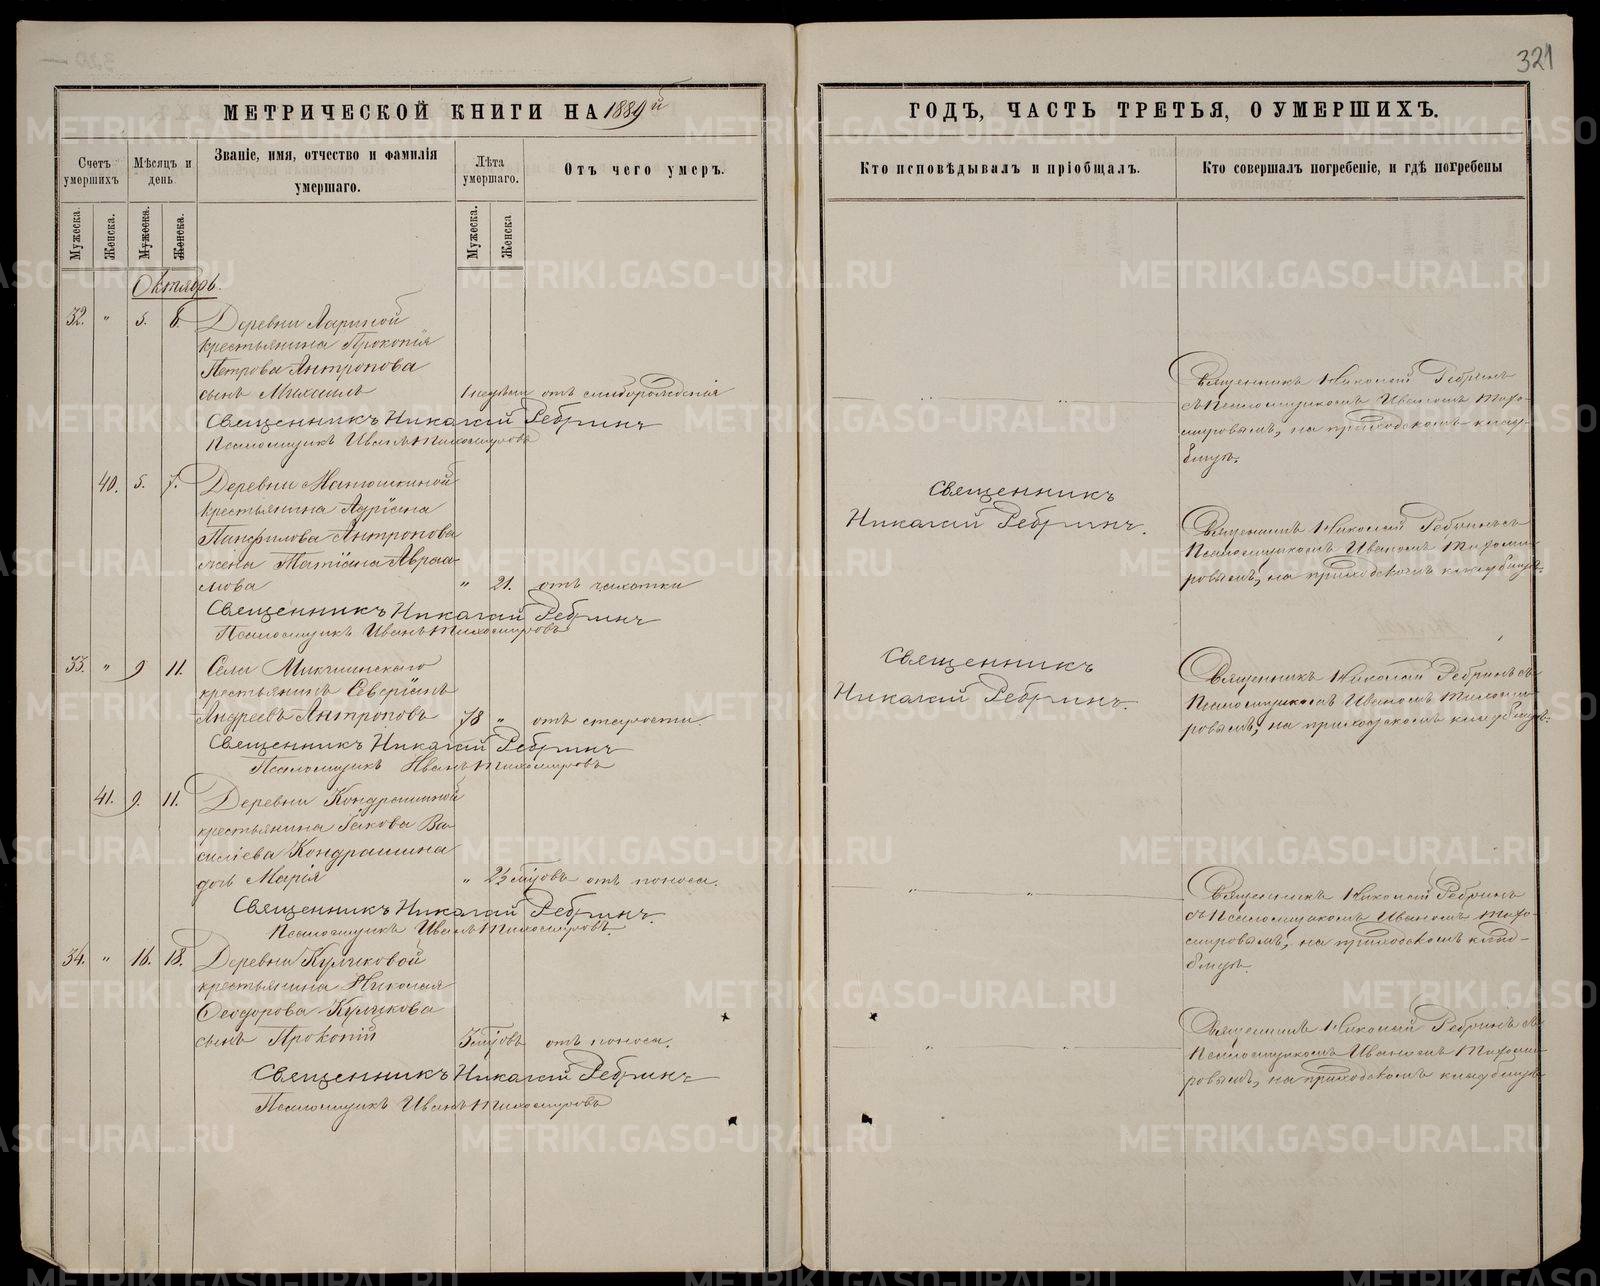 321
МЕТРИЧЕСКОЙ КНИГИ НА 1889й
ГОДЪ, ЧАСТЬ ТРЕТЬЯ, О УМЕРШИХЪ.
Счетъ умершихъ
Мѣсяцъ и день.
Званіе, имя, отчество и фамилія умершаго.
Лѣта умершаго.
Отъ чего умеръ.
Кто исповѣдывалъ и пріобщалъ.
Кто совершалъ погребеніе, и гдѣ погребены
Мужеска. Женска. Мужеска. Женска. Мужеска. Женска
Октябрь.
32. " 5. 8. Деревни Лариной
крестьянина Прокопія
Петрова Антропова
сынъ Михаилъ 1 недѣли отъ слаборожденія
Священникъ Николай Ребринъ
Псаломщикъ Иванъ Тихомировъ
Священникъ Николай Ребринъ
съ Псаломщикомъ Иваномъ Тихо-
мировымъ, на приходскомъ клад-
бищѣ.
40. 5. 7. Деревни Матюшкиной
крестьянина Адріана
Панфилова Антропова
жена Татіана Авраа-
мова " 21. отъ чахотки
Священникъ Николай Ребринъ
Псаломщикъ Иванъ Тихомировъ
Священникъ
Николай Ребринъ.
Священникъ Николай Ребринъ съ
Псаломщикомъ Иваномъ Тихоми-
ровымъ, на приходскомъ кладбищѣ.
33. " 9 11. Села Микшинскаго
крестьянинъ Северіанъ
Андреевъ Антроповъ 78 " отъ старости.
Священникъ Николай Ребринъ
Псаломщикъ Иванъ Тихомировъ
Священникъ
Николай Ребринъ.
Священникъ Николай Ребринъ съ
Псаломщикомъ Иваномъ Тихоми-
ровымъ, на приходскомъ кладбищѣ.
41. 9. 11. Деревни Кондрашиной
крестьянина Іакова Ва-
силіева Кондрашина
дочь Марія " 2½ мѣсѣцовъ отъ поноса.
Священникъ Николай Ребринъ.
Псаломщикъ Иванъ Тихомировъ.
Священникъ Николай Ребринъ
съ Псаломщикомъ Иваномъ Тихо-
мировымъ, на приходскомъ клад-
бищѣ.
34. " 16. 18. Деревни Куличковой
крестьянина Николая
Ѳеодорова Куличкова
сынъ Прокопій 3 мѣсѣцовъ отъ поноса.
Священникъ Николай Ребринъ
Псаломщикъ Иванъ Тихомировъ
Священникъ Николай Ребринъ съ
Псаломщикомъ Иваномъ Тихоми-
ровымъ, на приходскомъ кладбищѣ
METRIKI.GASO-URAL.RU